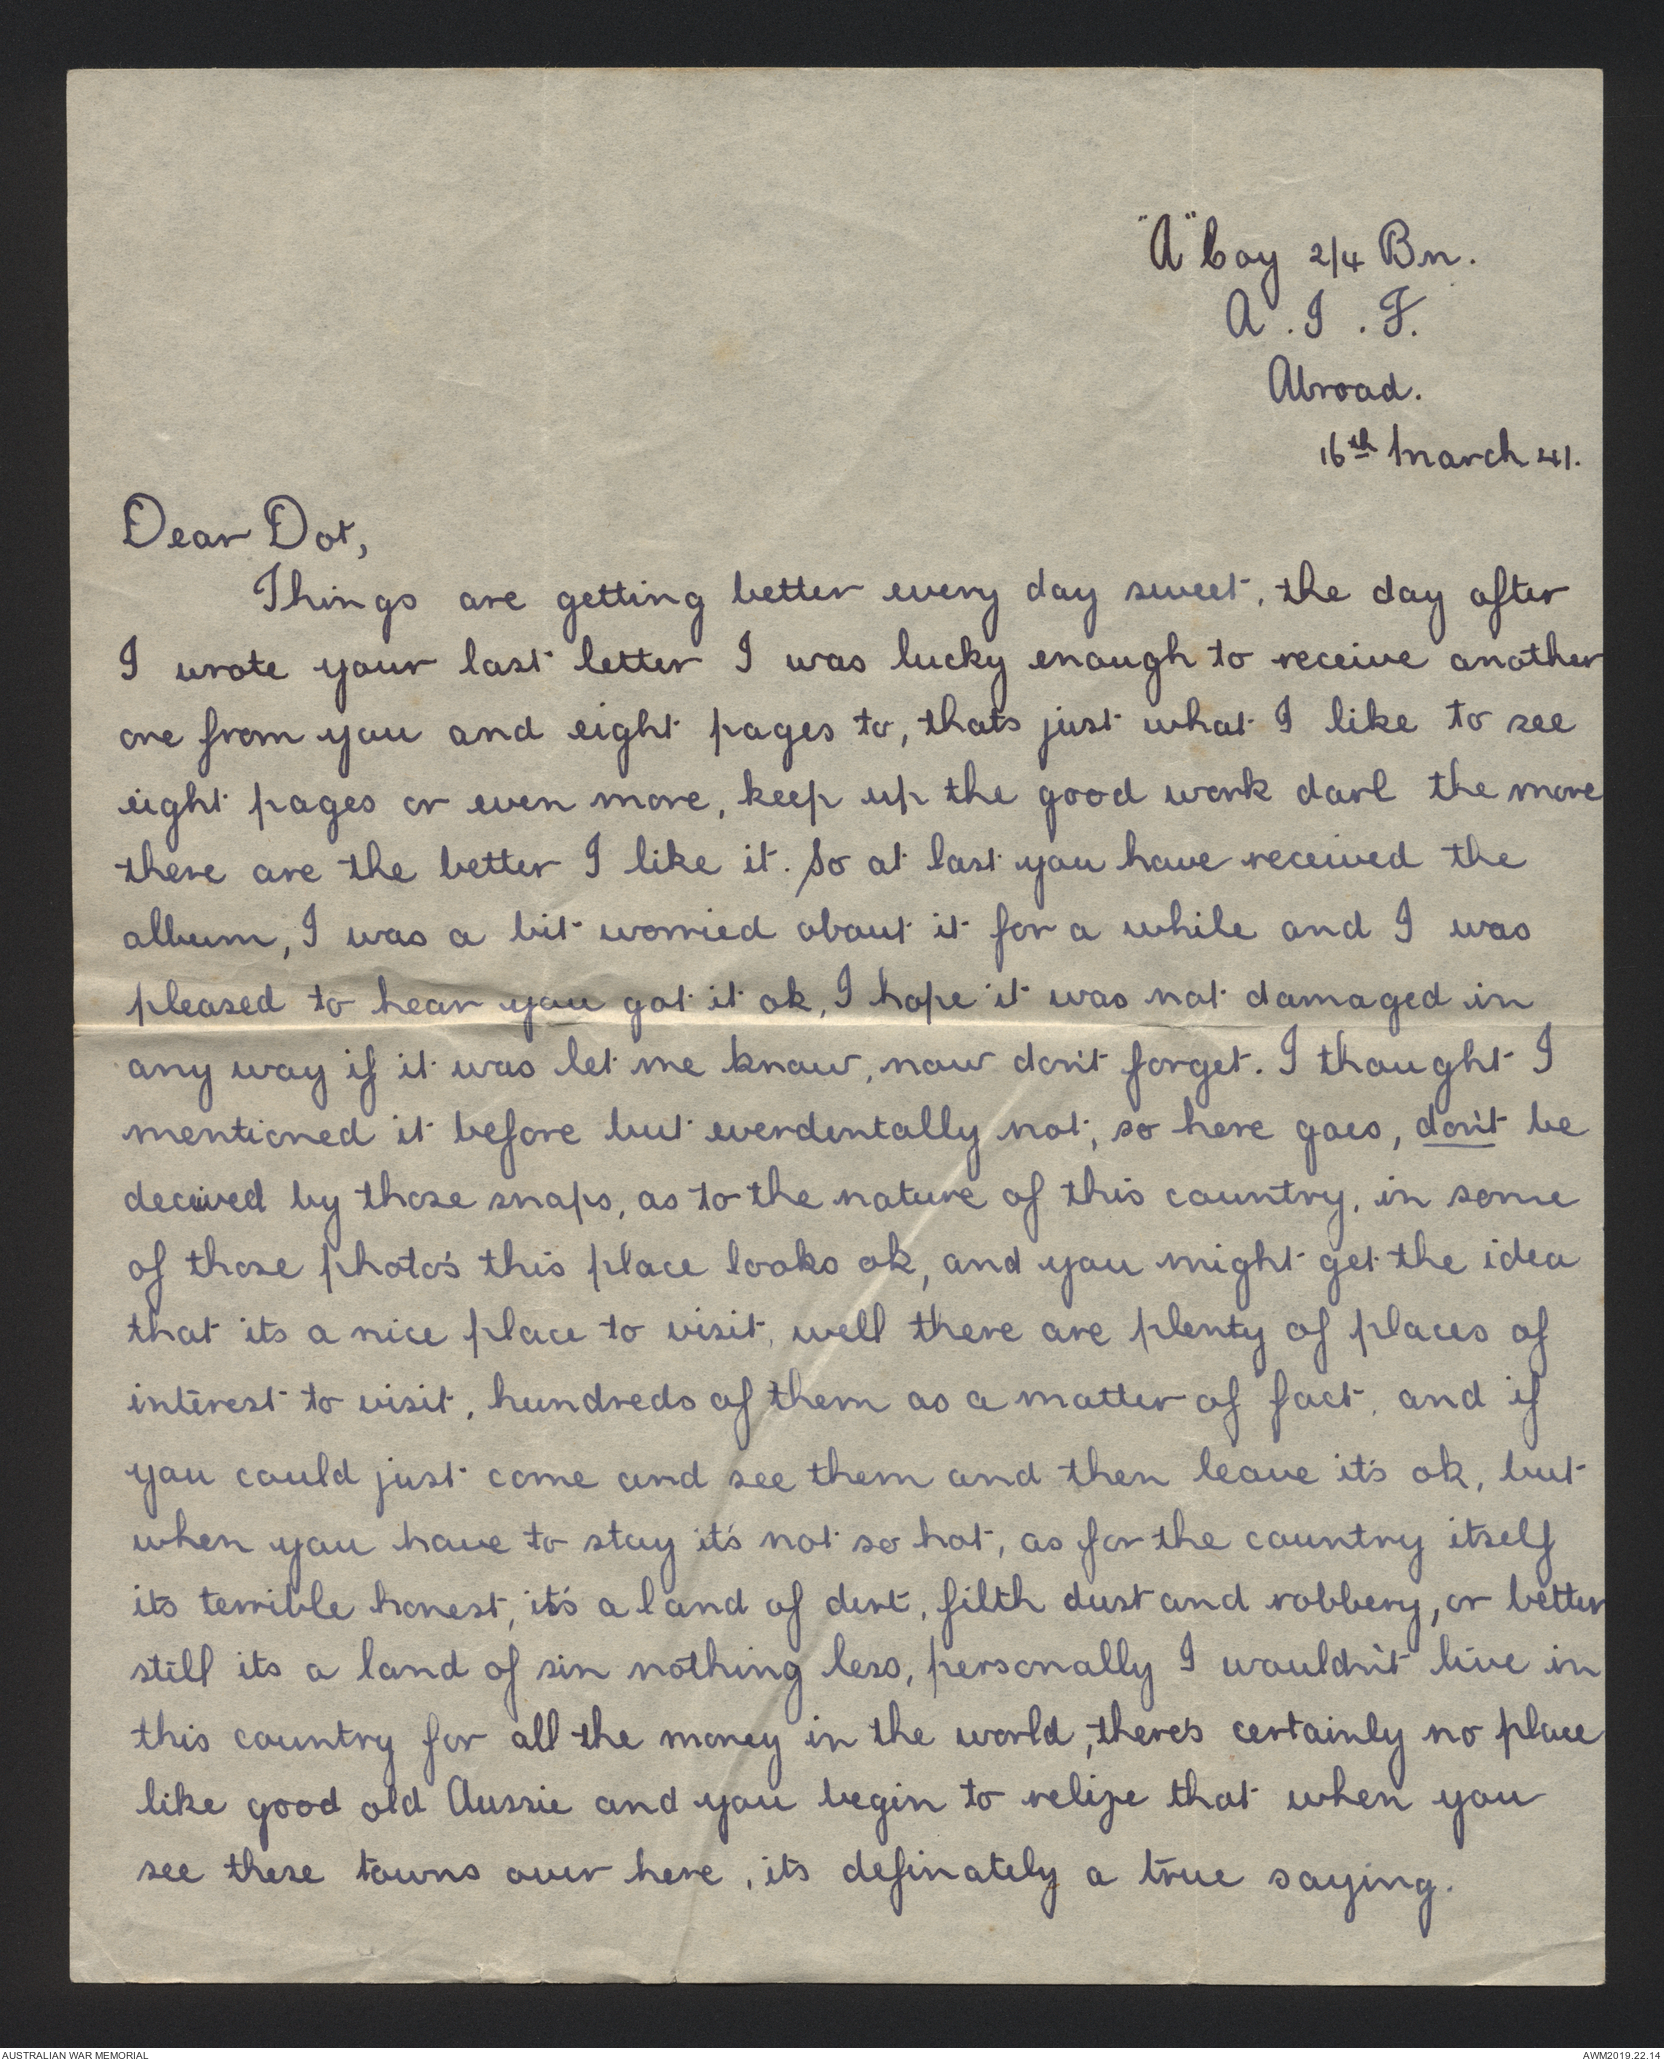 "A" Coy 2/4 Bn.
A.I.F.
Abroad.
16th March 41.
Dear Dot,
Things are getting better every day sweet, the day after
I wrote your last letter I was lucky enough to receive another
one from you and eight pages to, thats just what I like to see
eight pages or even more, keep up the good work darl the more
there are the better I like it. So at last you have received the
album, I was a bit worried about it for a while and I was
pleased to hear you got it ok, I hope it was not damaged in
any way if it was let me know, now don't forget. I thought I
mentioned it before but everdentally not, so here goes, don't be
deceived by those snaps, as to the nature of this country, in some
of those photo's this place looks ok, and you might get the idea
that its a nice place to visit, well there are plenty of places of
interest to visit, hundreds of them as a matter of fact, and if
you could just come and see them and then leave it's ok, but
when you have to stay it's not so hot, as for the country itself
its terrible honest, it's a land of dirt, filth dust and robbery, or better
still its a land of sin nothing less, personally I wouldn't live in
this country for all the money in the world, there's certainly no place
like good old Aussie and you begin to relize that when you
see these towns over here, its definately a true saying.
AUSTRALIAN WAR MEMORIAL
AWM2019.22.14